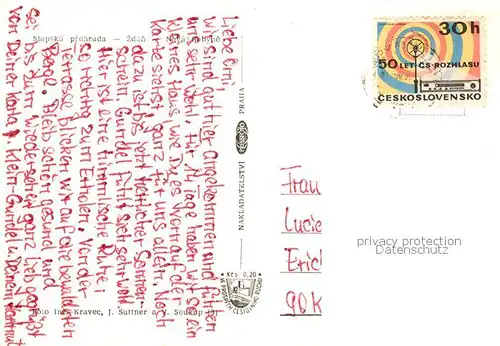 Slapská přehrada — Ždáň
Liebe Omi,
wir sind gut hier angekommen und fühlen
uns sehr wohl. Für 14 Tage haben wir so ein
kleines Haus, wie Du es vorn auf der
Karte siehst, ganz für uns allein. Noch
dazu ist bis jetzt herrlicher Sonnen-
schein. Gundel fühlt sich sehr wohl.
Hier ist eine himmlische Ruhe,
so richtig zum Erholen. Von der
Terrasse blicken wir auf die bewaldeten
Berge. Bleib schön gesund und
sei bis zum Wiedersehen ganz lieb gegrüßt
von Deiner Klein-Gundel u. Deinem Hartmut
Foto Ing. Kravec, J. Suttner a V. Soukup
NAKLADATELSTVÍ PRAHA
Kčs 0,20
30h
50 LET ČS. ROZHLASU
ČESKOSLOVENSKO
Frau
Lucie
privacy protection
Datenschutz